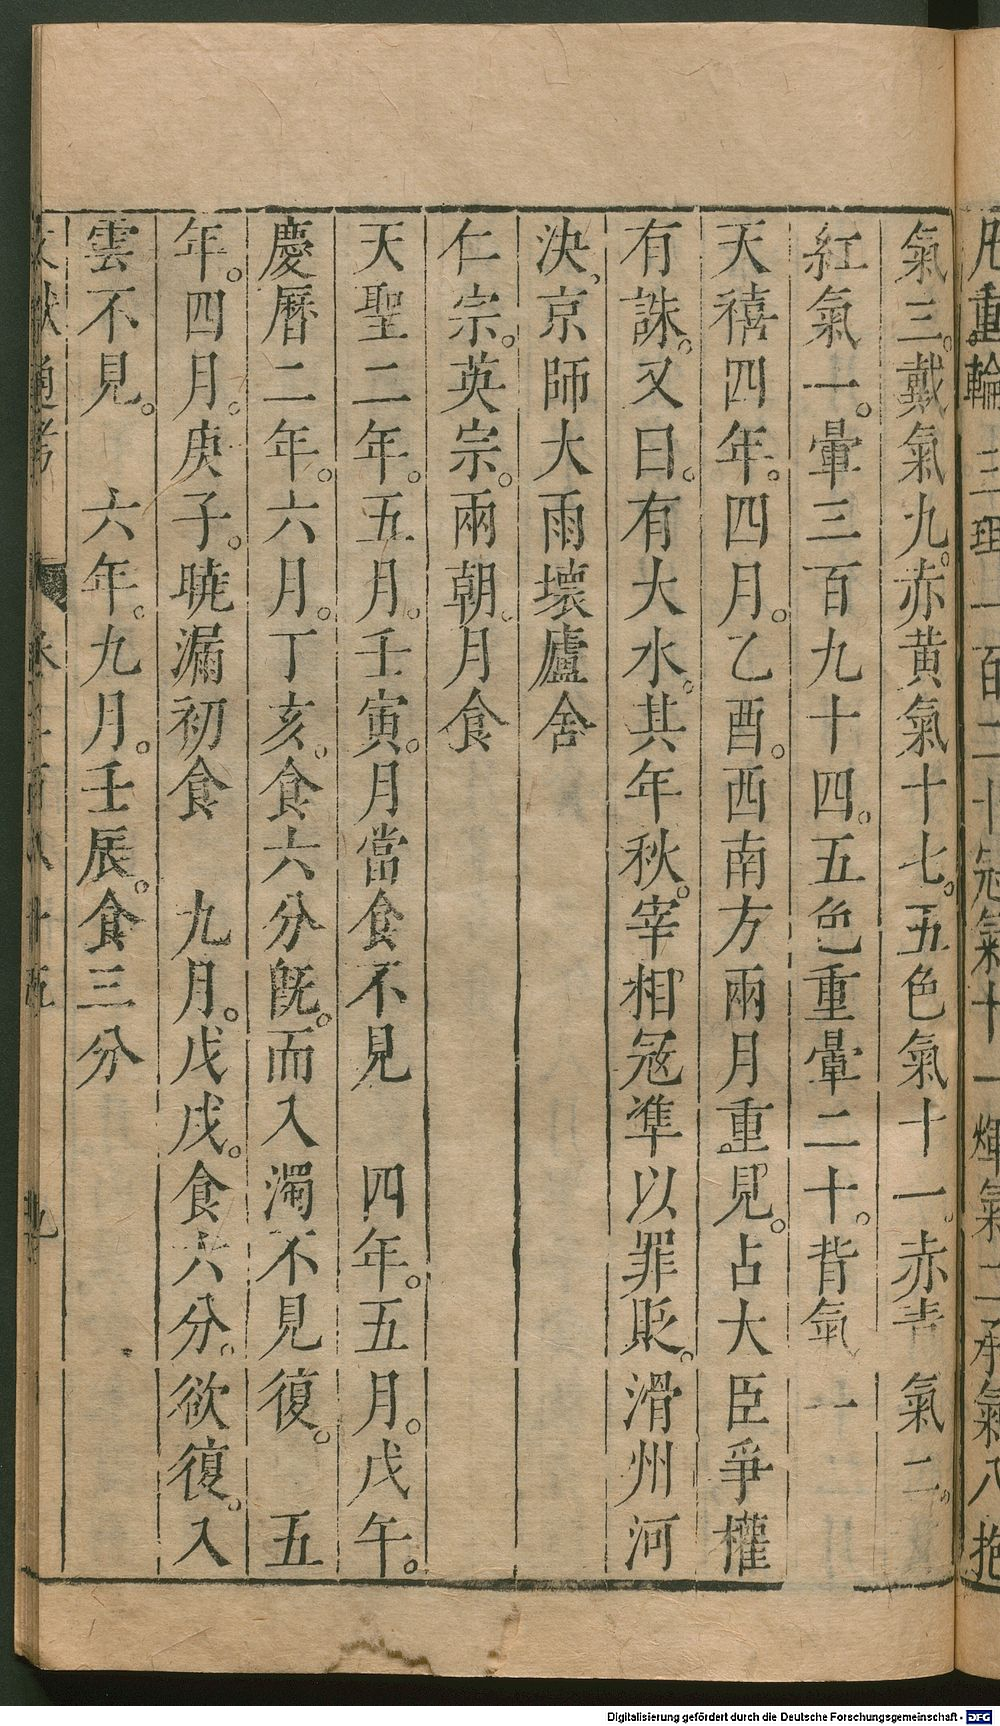 氣三。戴氣九。赤黃氣十七。五色氣十一。赤青氣二。
紅氣一。暈三百九十四。五色重暈二十。背氣一
天禧四年。四月。乙酉。西南方兩月重見。占大臣爭權
有誅。又曰。有大水。其年秋。宰相冦準以罪貶。滑州河
決、京師大雨壞廬舍
仁宗。英宗。兩朝。月食
天聖二年。五月。壬寅。月當食不見　四年。五月。戊午。
慶曆二年。六月。丁亥。食六分旣。而入濁不見復。　五
年。四月。庚子。曉漏初食　九月。戊戌。食六分。欲復。入
雲不見。　六年。九月。壬辰。食三分
Digitalisierung gefördert durch die Deutsche Forschungsgemeinschaft - DFG